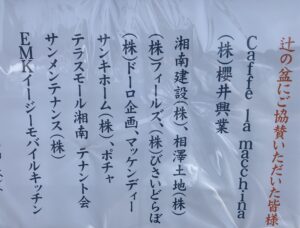 辻の盆にご協賛いただいた皆様
Caffè la macchina
(株)櫻井興業
湘南建設(株)、相澤土地(株)
(株)フィールズ、(株)びさいどらぼ
(株)ドーロ企画、マッケンディー
サンキホーム(株)、ボチャ
テラスモール湘南 テナント会
サンメンテナンス(株)
EMKイージーモバイルキッチン